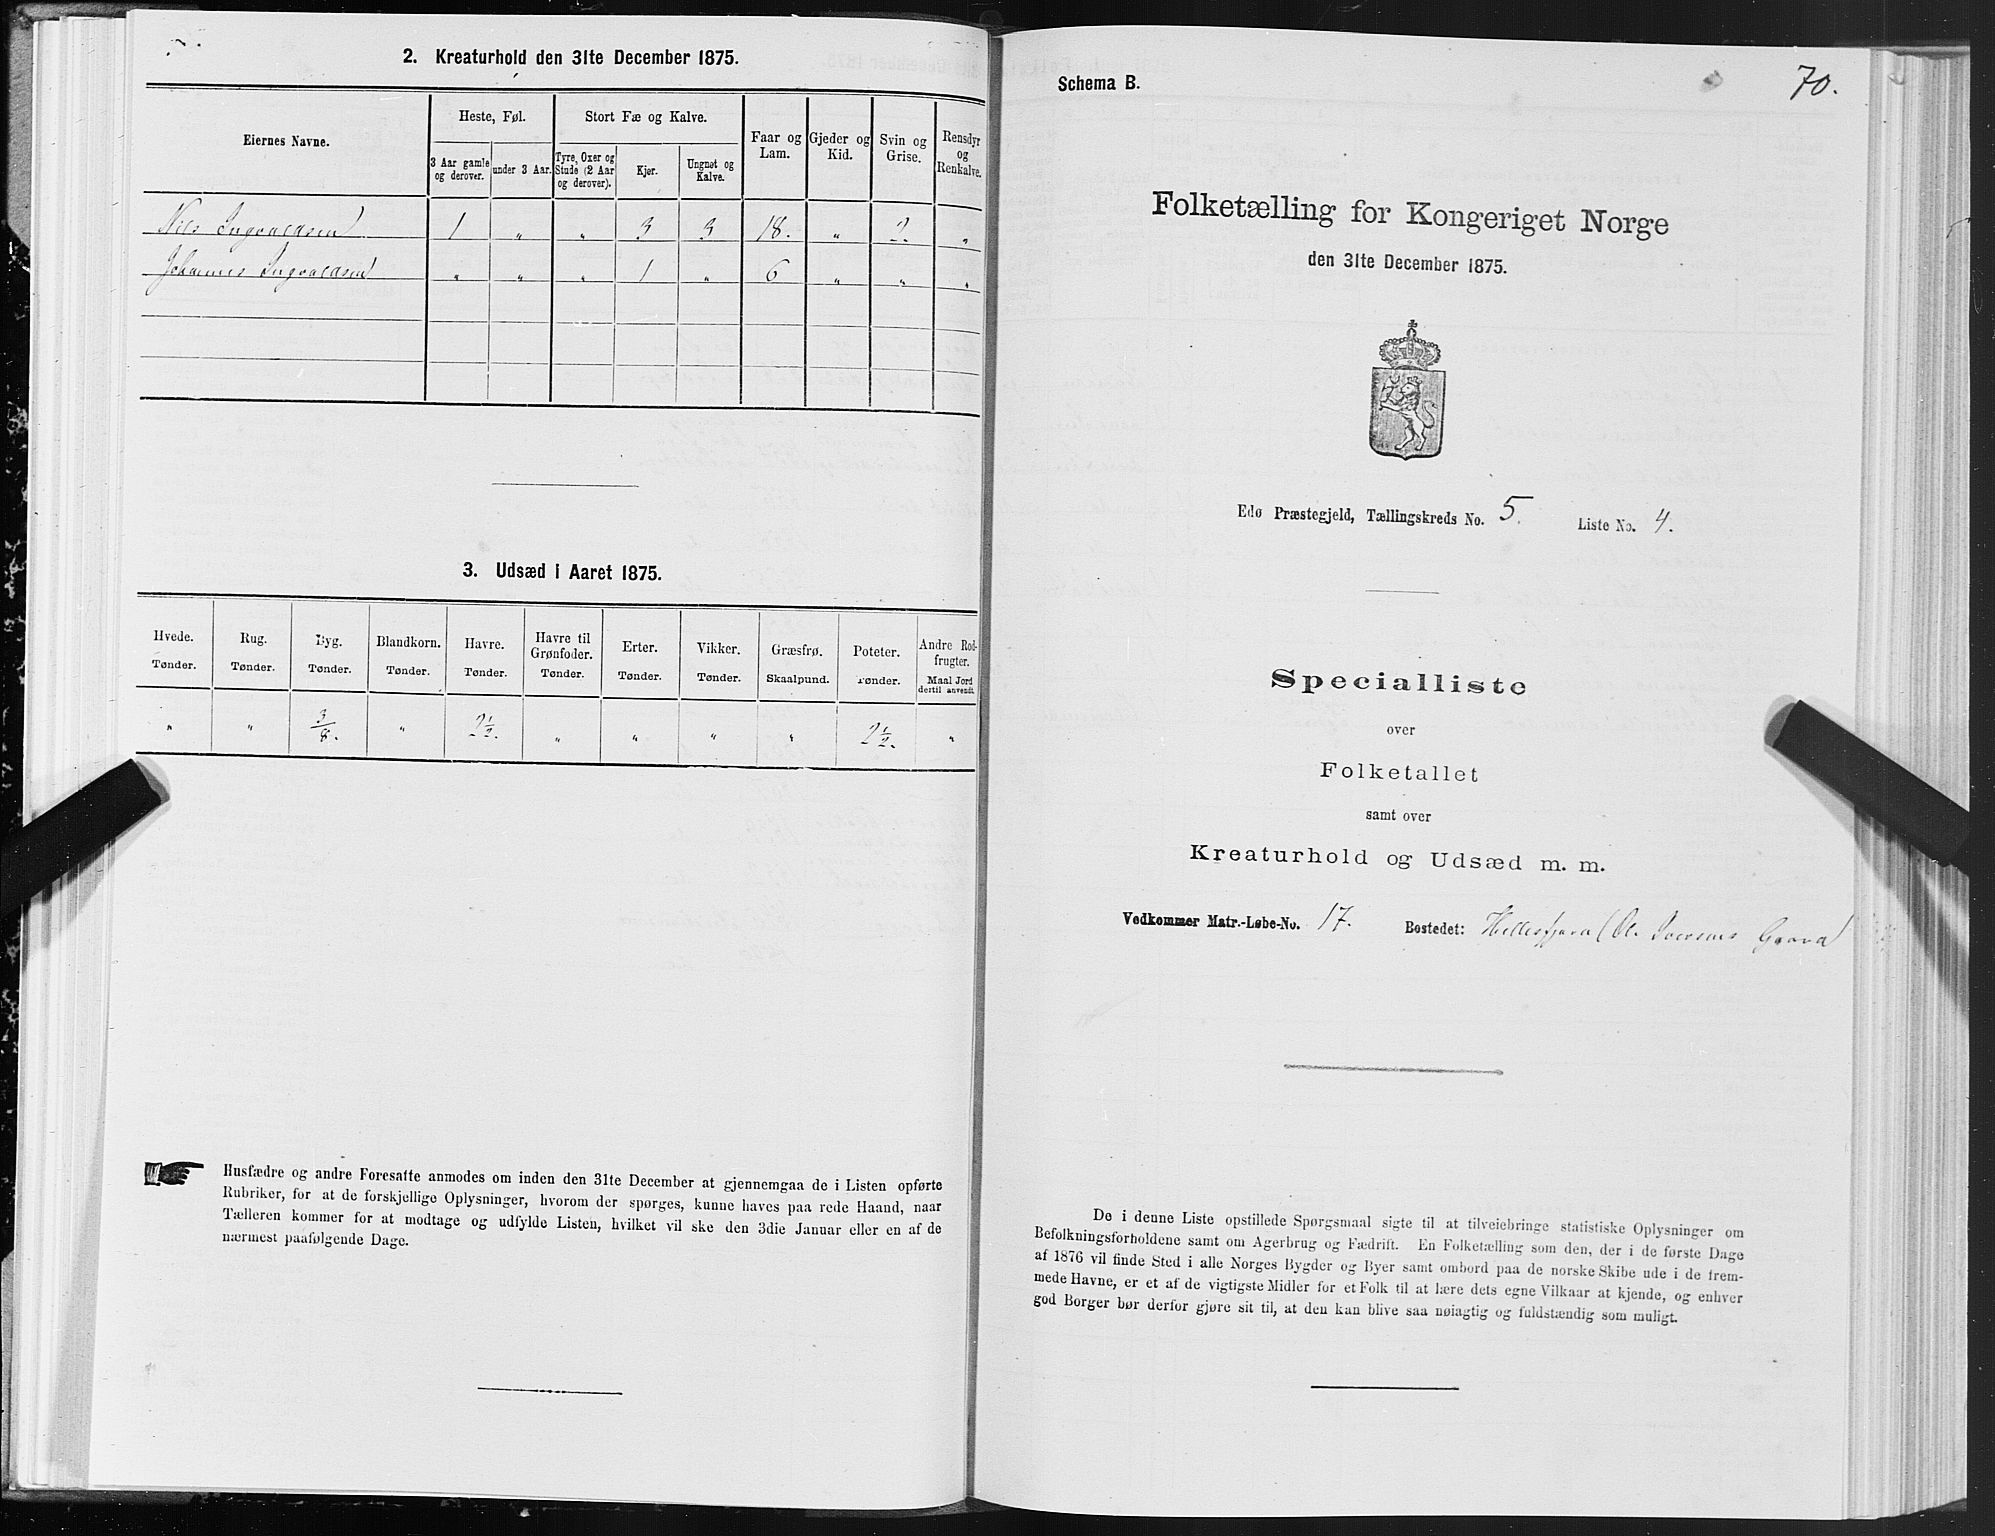 2. Kreaturhold den 31te December 1875.
Eiernes Navne.
Heste, Føl.
Stort Fæ og Kalve.
Faar og Lam.
Gjeder og Kid.
Svin og Grise.
Rensdyr og Renkalve.
3 Aar gamle og derover.
under 3 Aar.
Tyre, Oxer og Stude (2 Aar og derover).
Kjør.
Ungnøt og Kalve.
Nils Ingvaldsen 1 „ „ 3 3 18. „ 2. „
Johannes Ingvaldsen „ „ „ 1 „ 6 „ „ „
3. Udsæd i Aaret 1875.
Hvede. Rug. Byg. Blandkorn. Havre. Havre til Grønfoder. Erter. Vikker. Græsfrø. Poteter. Andre Rodfrugter.
Tønder. Tønder. Tønder. Tønder. Tønder. Tønder. Tønder. Tønder. Skaalpund. Tønder. Maal Jord dertil anvendt.
„ „ 3/8. „ 2 1/2. „ „ „ „ 2 1/2. „
Husfædre og andre Foresatte anmodes om inden den 31te December at gjennemgaa de i Listen opførte
Rubriker, for at de forskjellige Oplysninger, hvorom der spørges, kunne haves paa rede Haand, naar
Tælleren kommer for at modtage og udfylde Listen, hvilket vil ske den 3die Januar eller en af de
nærmest paafølgende Dage.
70.
Schema B.
Folketælling for Kongeriget Norge
den 31te December 1875.
Edø Præstegjeld, Tællingskreds No. 5. Liste No. 4.
Specialliste
over
Folketallet
samt over
Kreaturhold og Udsæd m. m.
Vedkommer Matr.-Løbe-No. 17. Bostedet: Hellesfjord (Ol. Iversens Gaard
De i denne Liste opstillede Spørgsmaal sigte til at tilveiebringe statistiske Oplysninger om
Befolkningsforholdene samt om Agerbrug og Fædrift. En Folketælling som den, der i de første Dage
af 1876 vil finde Sted i alle Norges Bygder og Byer samt ombord paa de norske Skibe ude i de frem-
mede Havne, er et af de vigtigste Midler for et Folk til at lære dets egne Vilkaar at kjende, og enhver
god Borger bør derfor gjøre sit til, at den kan blive saa nøiagtig og fuldstændig som muligt.